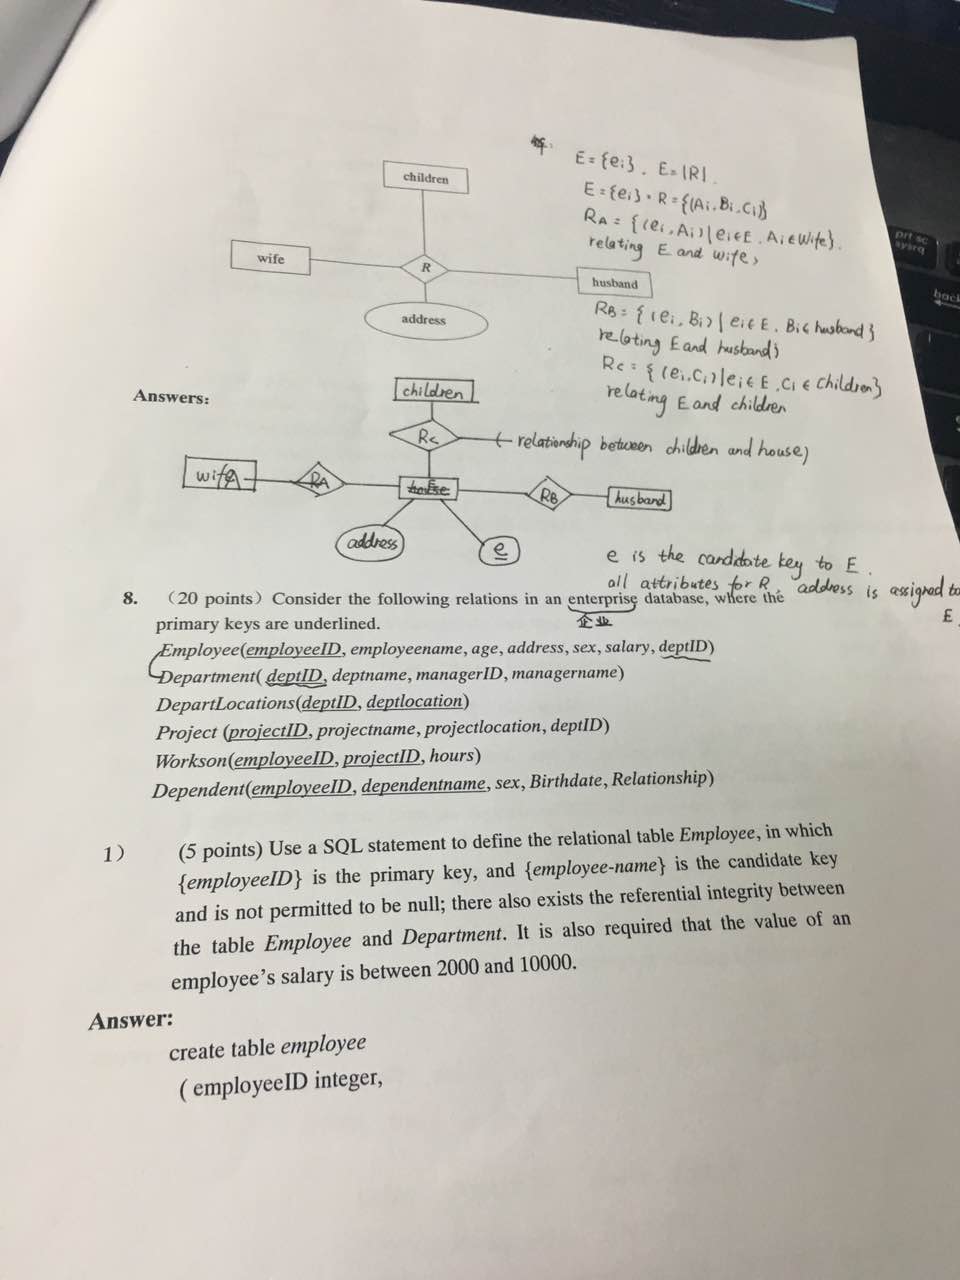 children
wife
R
husband
address
E={ei}. E=|R|.
E={ei}. R={(Ai.Bi.Ci)}
RA = {(ei,Ai)|ei∈E. Ai∈Wife}.
relating E and wife,
RB= {(ei,Bi)|ei∈E. Bi∈husband}
relating E and husband;
Rc = {(ei.Ci)|ei∈E.Ci∈Children}
relating E and children
Answers:
children
Rc
(relationship between children and house)
wife
RA
E
RB
husband
address
e
e is the candidate key to E.
all attributes for R, address is assigned to
E.
8. (20 points) Consider the following relations in an enterprise database, where the
企业
primary keys are underlined.
Employee(employeeID, employeename, age, address, sex, salary, deptID)
Department( deptID, deptname, managerID, managername)
DepartLocations(deptID, deptlocation)
Project (projectID, projectname, projectlocation, deptID)
Workson(employeeID, projectID, hours)
Dependent(employeeID, dependentname, sex, Birthdate, Relationship)
1) (5 points) Use a SQL statement to define the relational table Employee, in which
{employeeID} is the primary key, and {employee-name} is the candidate key
and is not permitted to be null; there also exists the referential integrity between
the table Employee and Department. It is also required that the value of an
employee's salary is between 2000 and 10000.
Answer:
create table employee
( employeeID integer,
prt sc
sysrq